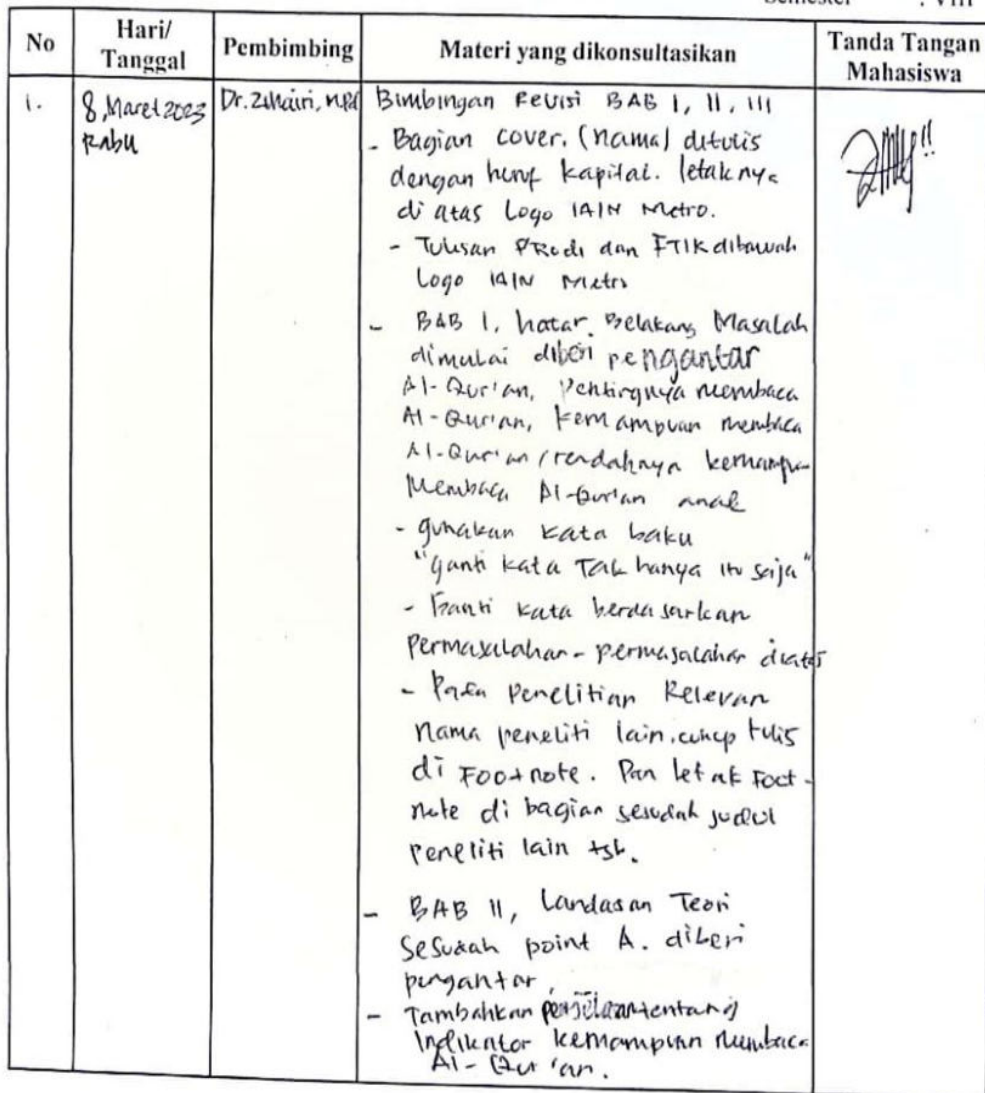 Semester : VIII
No
Hari/
Tanggal
Pembimbing
Materi yang dikonsultasikan
Tanda Tangan
Mahasiswa
1.
8, Maret 2023
Rabu
Dr. Zuhairi, M.Pd
Bimbingan Revisi BAB I, II, III
- Bagian cover. (nama) ditulis
dengan huruf kapital. letaknya
di atas Logo IAIN Metro.
- Tulisan PRodi dan FTIK dibawah
Logo IAIN Metro
- BAB I. Latar Belakang Masalah
dimulai diberi pengantar
Al-Qur'an, Pentingnya membaca
Al-Qur'an, kemampuan membaca
Al-Qur'an / rendahnya kemampuan
Membaca Al-Qur'an anak
- gunakan kata baku
"ganti kata Tak hanya itu saja"
- Ganti kata berdasarkan
Permasalahan - permasalahan diatas
- Pada Penelitian Relevan
nama peneliti lain. cukup tulis
di Footnote. Dan letak Foot-
note di bagian sesudah judul
peneliti lain tsb.
- BAB II, Landasan Teori
Sesudah point A. diberi
pengantar,
- Tambahkan penjelasan tentang
Indikator kemampuan membaca
Al-Qur'an.